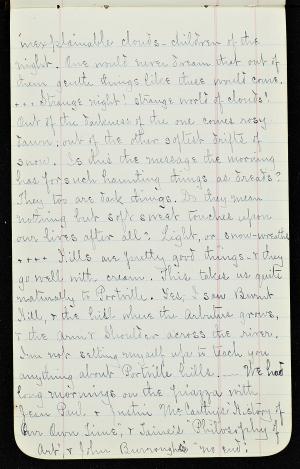 inexplainable clouds - children of the
night. One would never dream that out of
them gentle things like these would come.
+++ Strange night! strange world of clouds!
Out of the darkness of the one comes rosy
dawn; out of the other softest drifts of
snow. Is this the message the morning
has for such haunting things as dreads?
They too are dark things. Do they mean
nothing but soft sweet touches upon
our lives after all? Light, or snow-wreaths
++++ Fills are pretty good things - & they
go well with cream. This takes us quite
naturally to Portville. Yes, I saw Burnt
Hill, & the hill where the Arbutus grows,
& the Arm & Shoulder across the river.
I'm not setting myself up to teach you
anything about Portville hills. — We had
long mornings on the Piazza with
"Jean Paul" & Justin McCarthy's "History of
Our Own Time," & Taine's "Philosophy of
Art" & John Burroughs "no end."